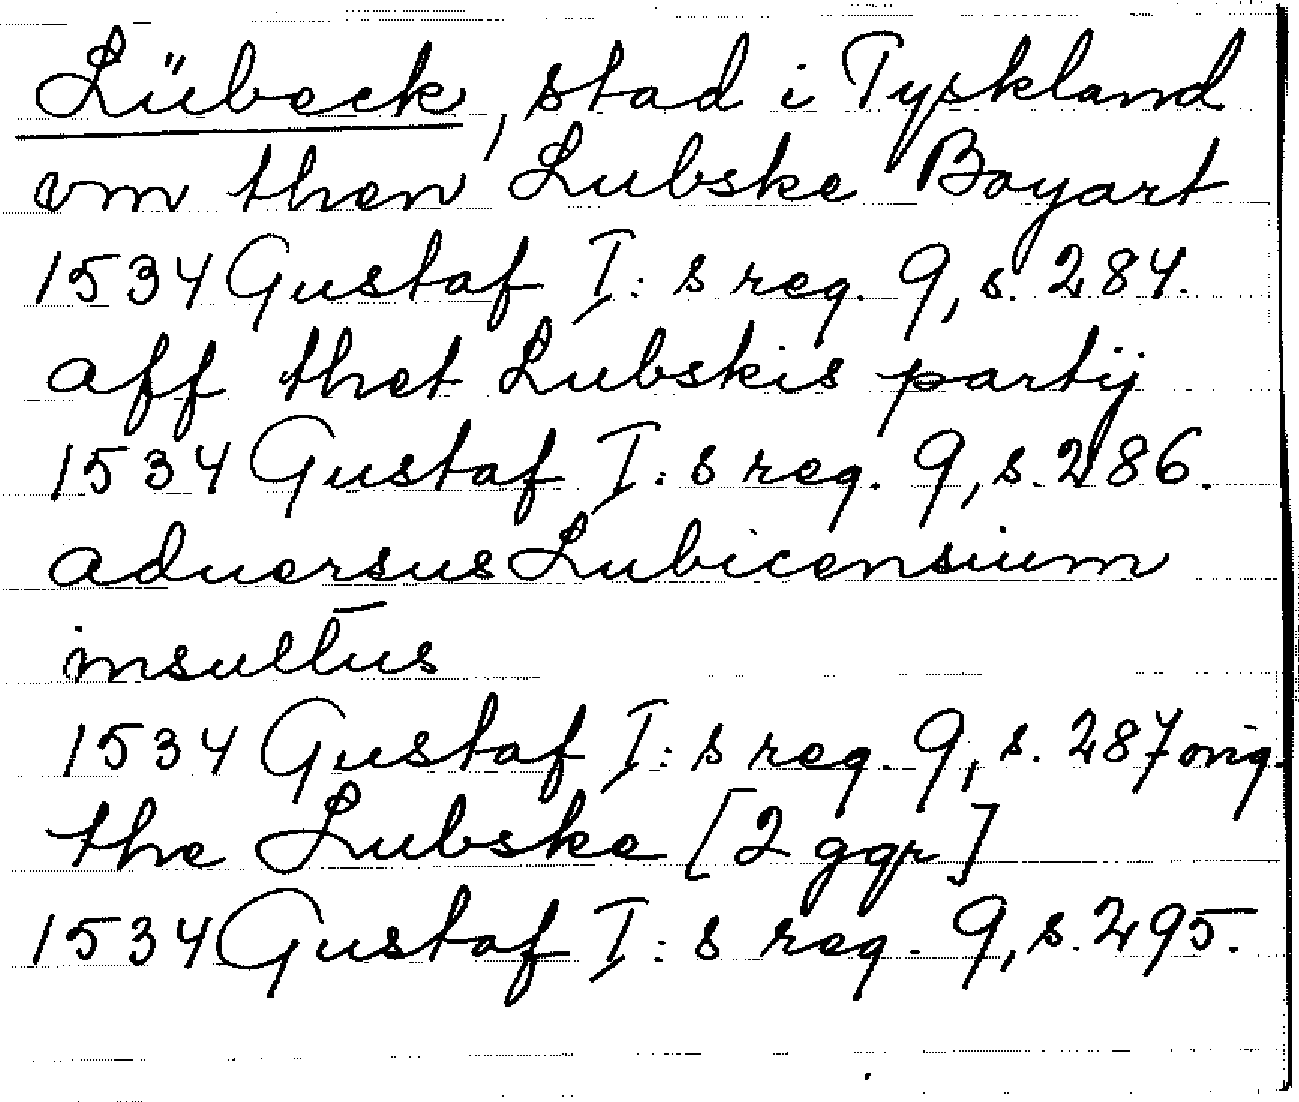 Lübeck, stad i Tyskland
vm then Lubske Boyart
1534 Gustaf I:s reg. 9, s. 284.
aff thet Lubskis partij
1534 Gustaf I:s reg. 9, s. 286.
aduersus Lubicensium
insultus
1534 Gustaf I:s reg. 9, s. 287 orig.
the Lubske [2 ggr]
1534 Gustaf I:s reg. 9, s. 295.